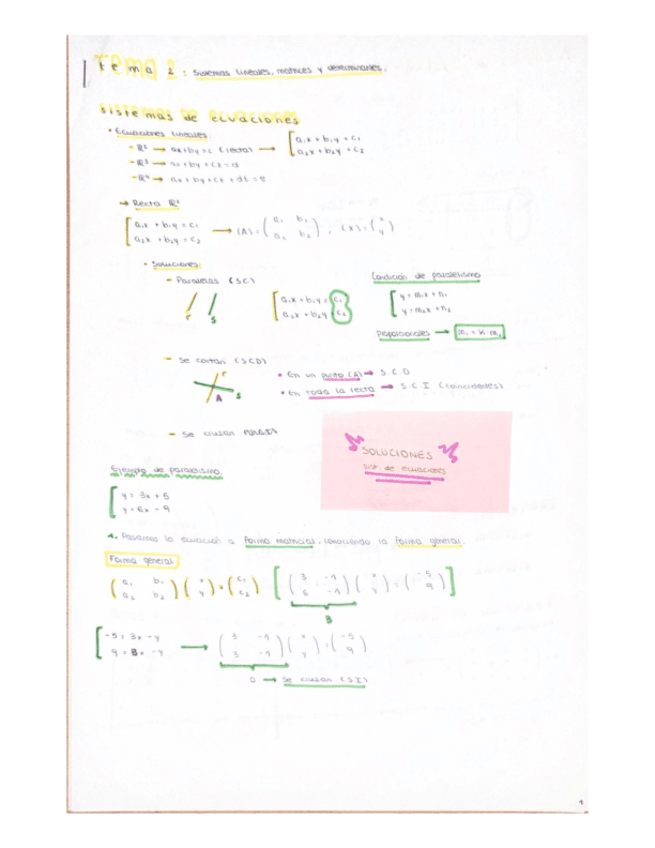 Tema 2: Sistemas lineales, matrices y determinantes.
sistemas de ecuaciones
• Ecuaciones lineales
→ ax+by=c (recta) → a₁x + b₁y = c₁
a₂x + b₂y = c₂
→ Recta R²
a₁x + b₁y = c₁
a₂x + b₂y = c₂ → (A)=(a₁ b₁
a₂ b₂), (X)=(x
y)
• Soluciones:
– Paralelas (SC)
r s
a₁x + b₁y = c₁
a₂x + b₂y = c₂
Condición de paralelismo
y = m₁x + n₁
y = m₂x + n₂
Proporcionales → m₁ = k · m₂
– Se cortan (SCD)
r
A s
• En un punto (A) → S.C.D
• En toda la recta → S.C.I (coincidentes)
– Se cruzan
SOLUCIONES
sist. de ecuaciones
Ejemplo de paralelismo.
y = 3x + 5
y = 6x - 9
1. Pasamos la ecuación a forma matricial, conociendo la forma general.
Forma general
(a₁ b₁
a₂ b₂)(x
y)=(c₁
c₂) [(3 -1
6 -1)(x
y)=(-5
9)]
B
-5 = 3x - y
→ (3 -1
3 -1)(x
y)=(-5
9)
0 → Se cruzan (SI)
1